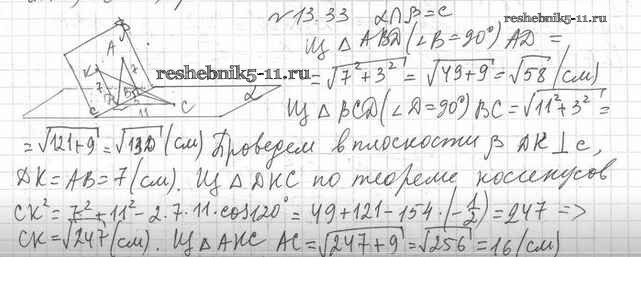 №13.33 α∩β=c
reshebnik5-11.ru
Из △ABD (∠B=90°) AD =
= √7²+3² = √49+9 = √58 (см)
reshebnik5-11.ru
Из △BCD (∠D=90°) BC = √11²+3² =
= √121+9 = √130 (см) Проведем в плоскости β DK⊥c,
DK=AB=7 (см). Из △DKC по теореме косинусов
CK² = 7²+11²-2·7·11·cos120° = 49+121-154·(-1/2) = 247 =>
CK=√247 (см). Из △AKC AC=√247+9 = √256 = 16 (см)
A
B
K
7
7
D
3
11
c
C
α